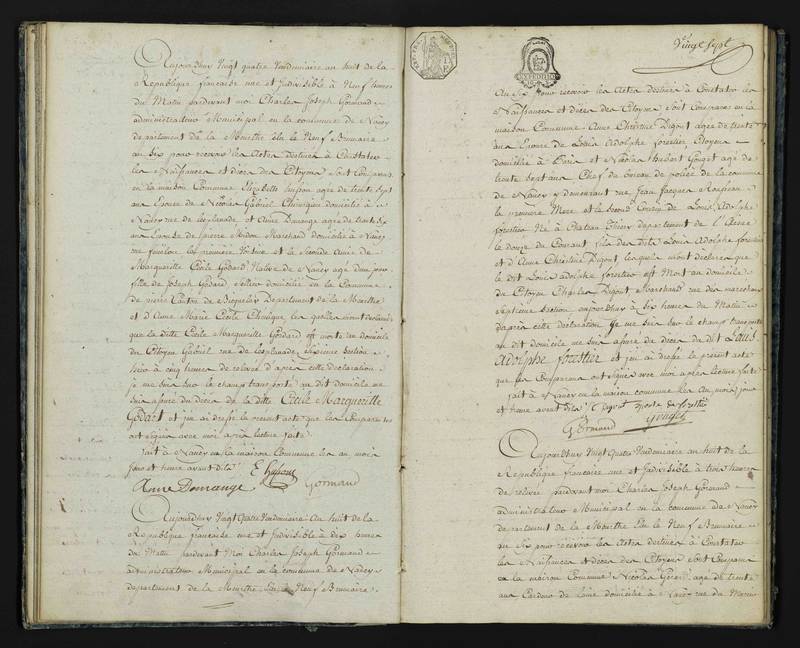 Aujourdhuy Vingt quatre Vendemiaire an huit de la
Republique francaise une et Indivisible à Neuf heures
du Matin pardevant moi Charles Joseph Gormand
administrateur Municipal en la commune de Nancy
departement de la Meurthe élu le Neuf Brumaire
an six pour recevoir les Actes destinés à Constater
les Naissances et décès des Citoyens sont Comparus
en la maison Commune Elizabette husson agée de trente sept
ans Epouse de Nicolas Gabriel Chirurgien domiciliée à
Nancy rue de l'esplanade et Anne Domange agée de trente six
ans Epouse de pierre Midon Marchand domiciliée à Nancy
me faisant les première Voisine et la Seconde Amie de
Marguerite Cécile Godard Native de Nancy agé d'un jour
fille de Joseph Godard Sellier domicilié en la Commune
de pierre Canton de Departement de la Meurthe
et d'Anne Marie Cécile lesquelles mont declarées
que la ditte Cécile Margueritte Godard est morte au domicile
du Citoyen Gabriel rue de l'esplanade Sixieme Section
hier à cinq heures de relevée d'après cette déclaration
je me suis sur le champ transporté au dit domicile me
suis assuré du décès de la ditte Cécile Margueritte
Godart et j'en ai dressé le present acte que les Comparantes
ont signées avec moi après lecture faite
fait à Nancy en la maison Commune les an mois
jour et heure avant dits E husson
Anne Domange Gormand
Aujourdhuy Vingt Quatre Vendemiaire an huit de la
Republique francaise une et Indivisible à dix heures
du Matin pardevant Moi Charles Joseph Gormand
administrateur Municipal en la commune de Nancy
departement de la Meurthe Elu le Neuf Brumaire
Vingt Sept
an Six pour recevoir les Actes destinés à Constater les
Naissances et décès des Citoyens sont Comparus en la
maison Commune Anne Christine Digout agée de trente
ans Epouse de Louis Adolphe forestier Citoyen
domicilié à Paris et Nicolas hubert Gouget agé de
trente sept ans Chef du bureau de police de la commune
de Nancy y demeurant rue Jean Jacques Rousseau
la première Mere et le second Cousin de Louis Adolphe
forestier Né à Chateau thiery departement de l'Aisne
le douze du Courant fils des dits Louis Adolphe forestier
et d'Anne Christine Digout lesquels mont declarés que
le dit Louis adolphe forestier est Mort au domicile
du Citoyen Charles Digout Marchand rue des marechaux
Septieme Section aujourdhuy à Six heures du Matin
daprès cette declaration Je me suis sur le champ transporté
au dit domicile me suis assuré du décès du dit Louis
Adolphe forestier et j'en ai dressé le présent acte
que les Comparans ont signés avec moi après lecture faite
fait à Nancy en la maison commune les an mois jour
et heure avant dits C Digout forestier
Gormand Gouget
Aujourdhuy Vingt Quatre Vendemiaire an huit de la
Republique francaise une et Indivisible à trois heures
de relevée pardevant moi Charles Joseph Gormand
administrateur Municipal en la commune de Nancy
departement de la Meurthe Elu le Neuf Brumaire
an six pour recevoir les Actes destinés à Constater
les Naissances et décès des Citoyens sont Comparus
en la maison Commune Nicolas Gérard agé de trente
ans Cardeur de laine domicilié à Nancy rue du